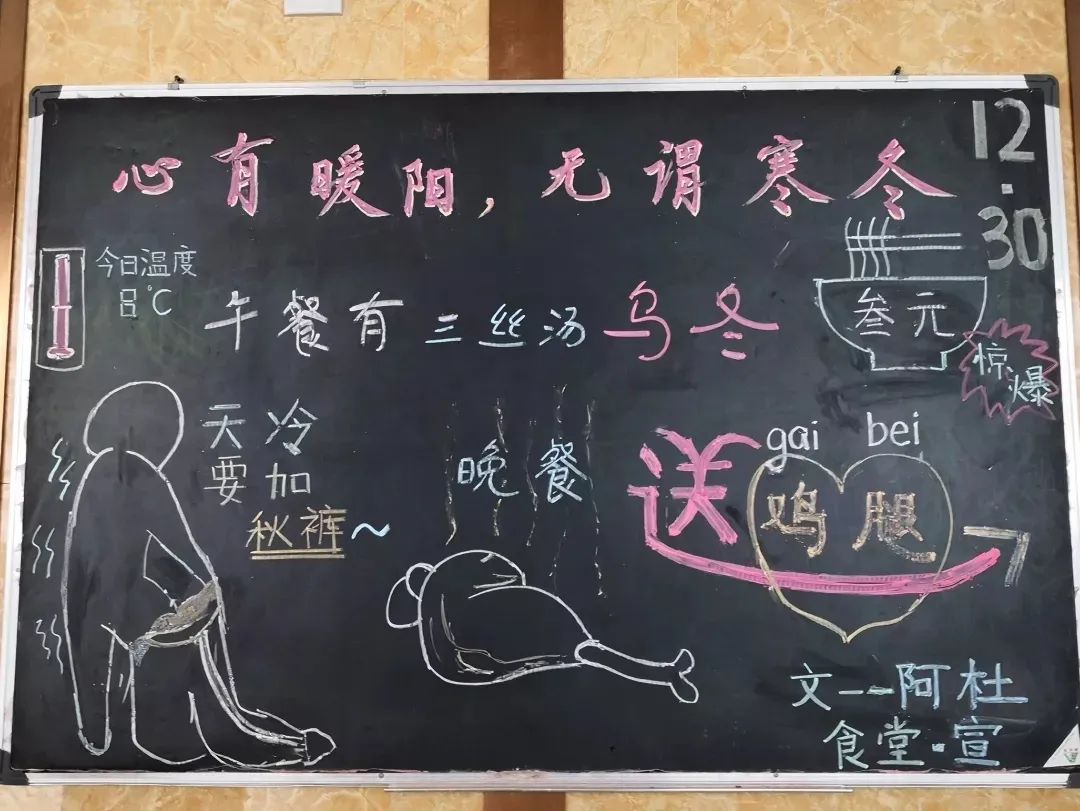 心有暖阳，无谓寒冬
12.30
今日温度
8℃
午餐有三丝汤乌冬
叁元
惊爆
天冷
要加
秋裤~
晚餐
gai bei
送鸡腿了
文--阿杜
食堂·宣